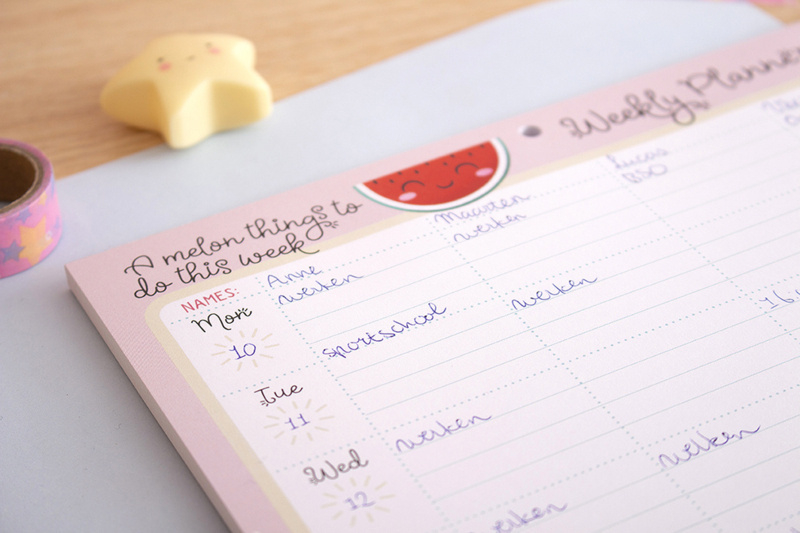 Weekly Planner
A melon things to
do this week
NAMES:
Anne
Maarten
Lucas
werken
werken
BSO
Mon
10
sportschool
werken
Tue
11
werken
werken
Wed
12